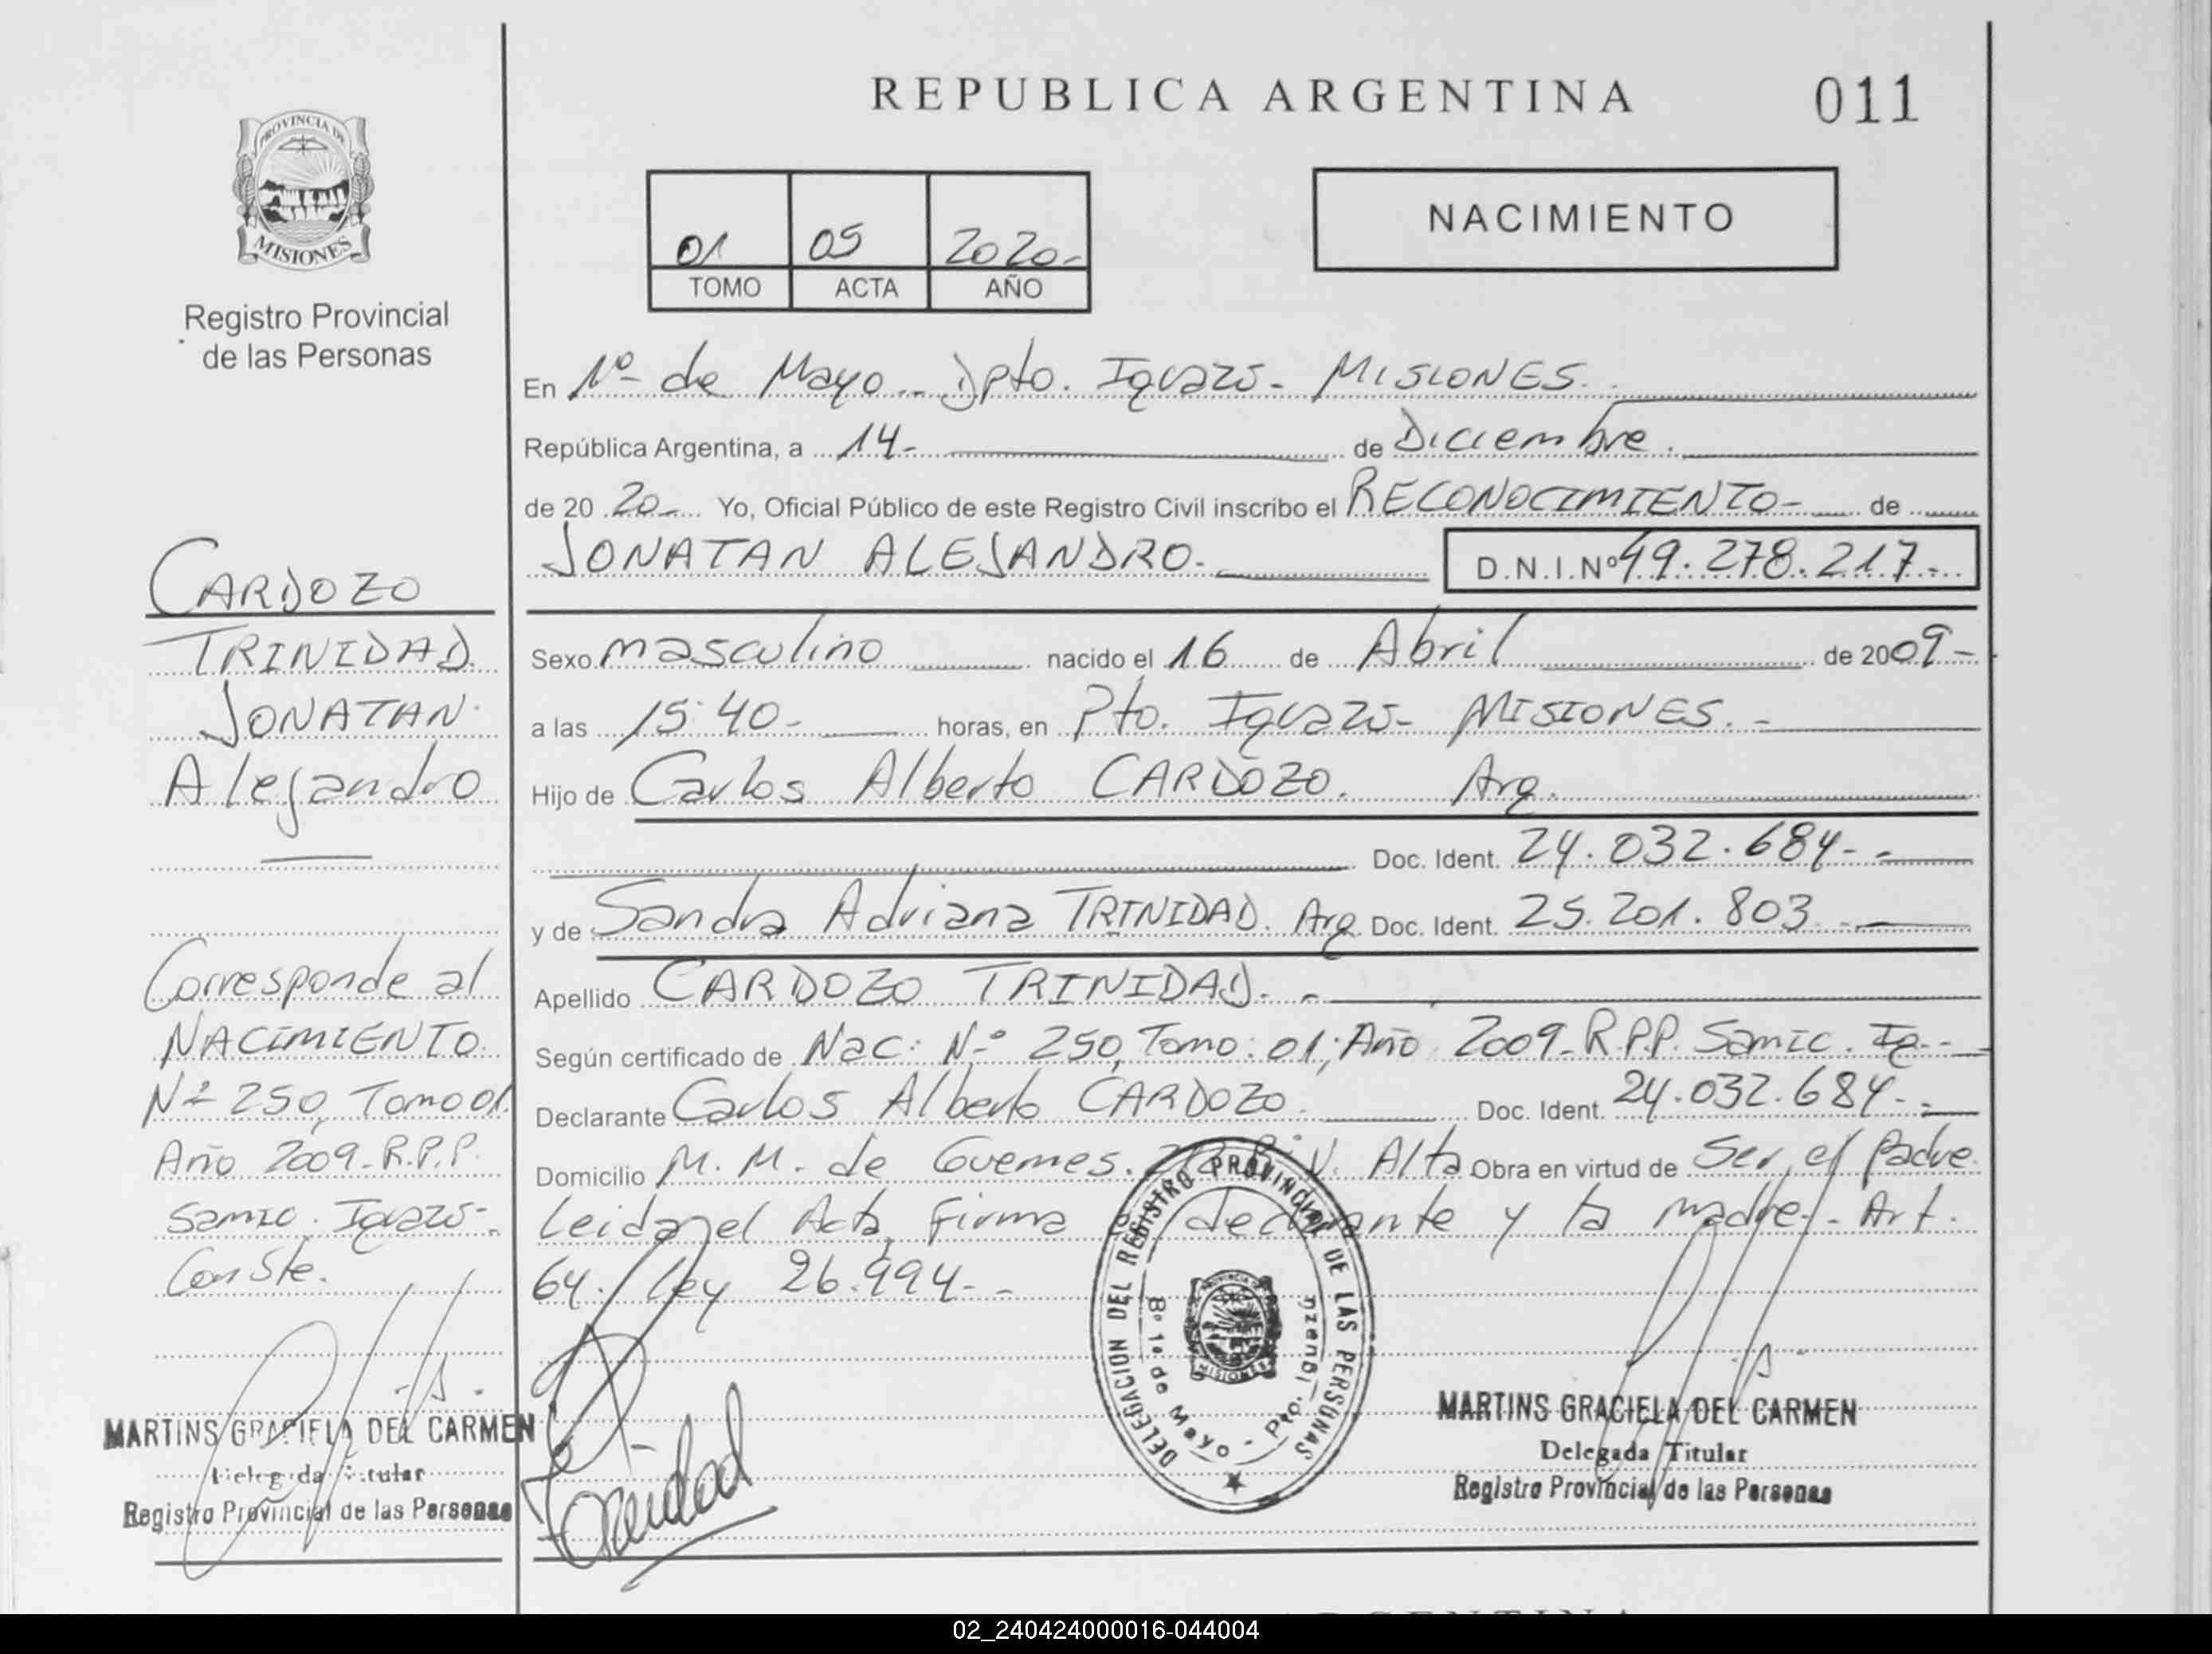 REPUBLICA ARGENTINA
011
PROVINCIA DE
MISIONES
Registro Provincial
de las Personas
01 05 2020-
TOMO ACTA AÑO
NACIMIENTO
En 1º de Mayo - Dpto. Iguazú - MISIONES.
República Argentina, a 14- de Diciembre.
de 20 20- Yo, Oficial Público de este Registro Civil inscribo el RECONOCIMIENTO- de
JONATAN ALEJANDRO.- D.N.I.Nº 49.278.217.-
Sexo masculino nacido el 16 de Abril de 2009-
a las 15:40- horas, en Pto. Iguazú- MISIONES.-
Hijo de Carlos Alberto CARDOZO. Arg.
Doc. Ident. 24.032.684.-
y de Sandra Adriana TRINIDAD. Arg. Doc. Ident. 25.201.803.-
Apellido CARDOZO TRINIDAD.-
Según certificado de Nac: Nº 250, Tomo: 01; Año 2009- R.P.P. Samic. Ig.-
Declarante Carlos Alberto CARDOZO. Doc. Ident. 24.032.684.-
Domicilio M. M. de Guemes. V. Alta Obra en virtud de Ser el Padre
Leida el Acta, Firma declarante y la madre.- Art.
64. Ley 26.994.-
CARDOZO
TRINIDAD
JONATAN
Alejandro
Corresponde al
NACIMIENTO
Nº 250, Tomo 01
Año 2009- R.P.P.
Samic. Iguazú-
Conste.
MARTINS GRACIELA DEL CARMEN
Delegada Titular
Registro Provincial de las Personas
Trinidad
DELEGACION DEL REGISTRO PROVINCIAL DE LAS PERSONAS
Bº 1º de Mayo - Pto. Iguazú
MISIONES
MARTINS GRACIELA DEL CARMEN
Delegada Titular
Registro Provincial de las Personas
02_240424000016-044004